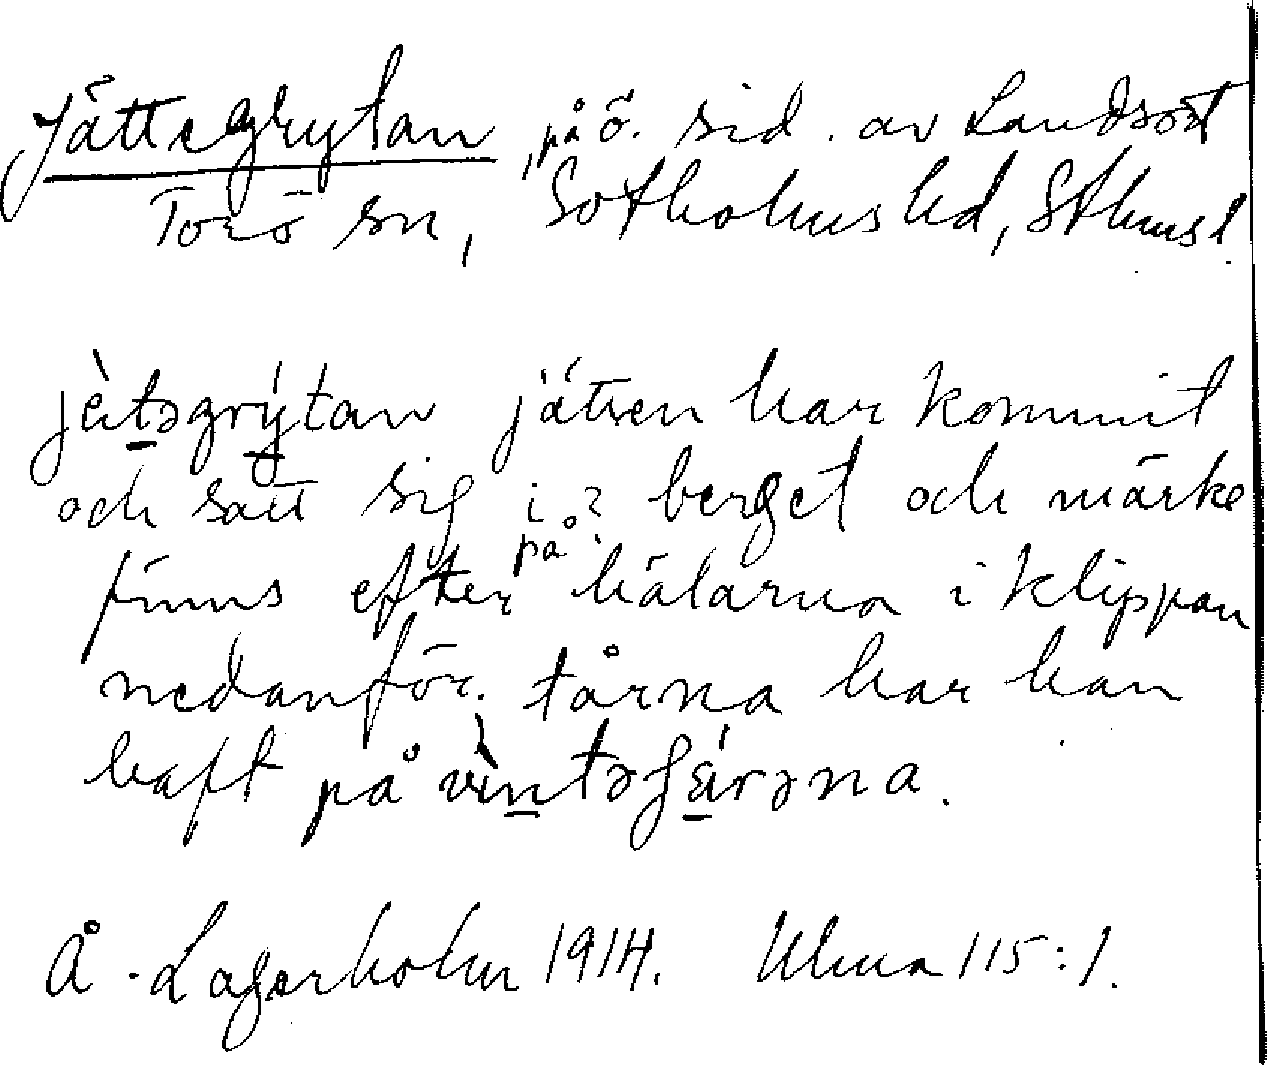 Jättegrytan, på ö. sid. av Landsort
Torö sn, Sotholms hd, Sthms l.
jät̲əgrýtan jätten har kommit
och satt sig i? berget och märke
på?
finns efter hälarna i klippan
nedanför. tårna har han
haft på vìn̲təʃä̲́rəna.
Å. Lagerholm 1914. Uluna 115:1.